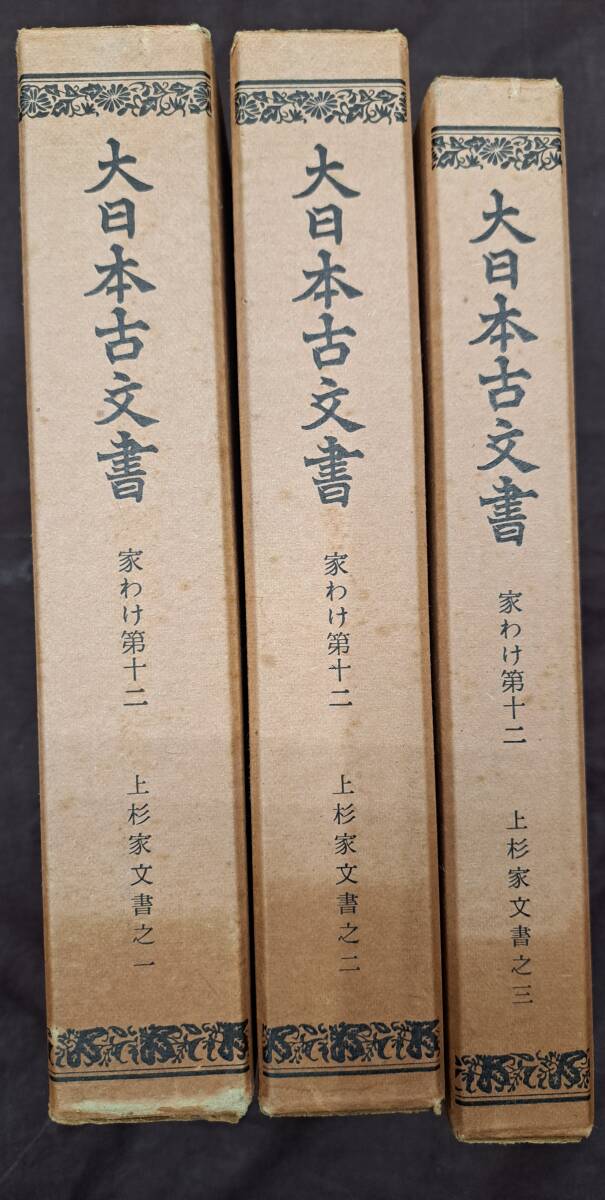 大日本古文書
家わけ第十二
上杉家文書之一
大日本古文書
家わけ第十二
上杉家文書之二
大日本古文書
家わけ第十二
上杉家文書之三